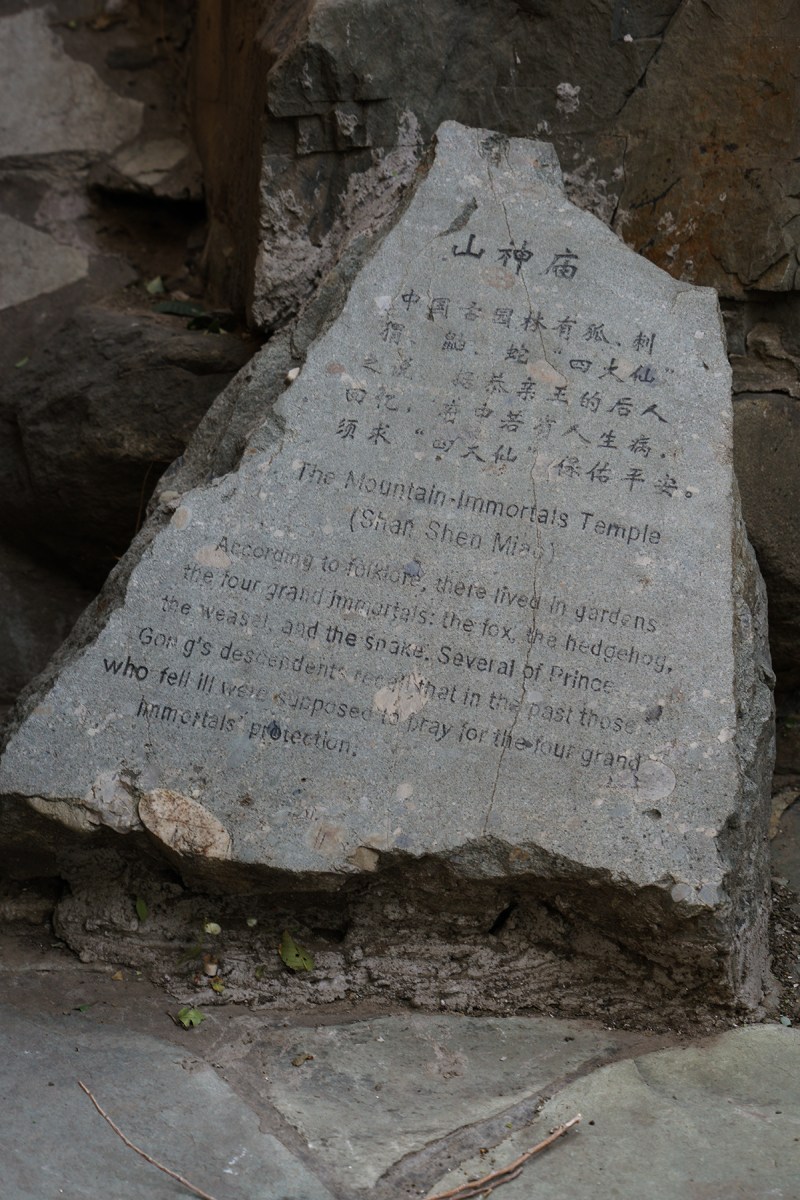 山神庙
中国古园林有狐、刺
猬、鼬、蛇“四大仙”
之说。据恭亲王的后人
回忆，府中若有人生病，
须求“四大仙”保佑平安。
The Mountain-Immortals Temple
(Shan Shen Miao)
According to folklore, there lived in gardens
the four grand immortals: the fox, the hedgehog,
the weasel, and the snake. Several of Prince
Gong's descendents recall that in the past those
who fell ill were supposed to pray for the four grand
immortals' protection.